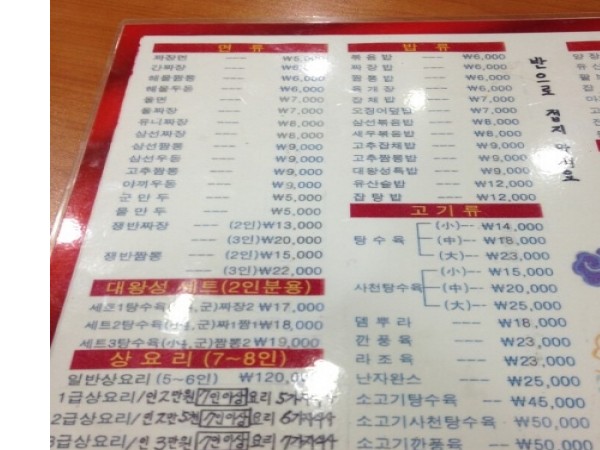 면 류
짜장면 --- ₩5,000
간짜장 --- ₩6,000
해물짬뽕 --- ₩6,000
해물우동 --- ₩6,000
울면 --- ₩7,000
불짜장 --- ₩7,000
유니짜장 --- ₩8,000
삼선짜장 --- ₩8,000
삼선짬뽕 --- ₩9,000
삼선우동 --- ₩9,000
고추짬뽕 --- ₩9,000
야끼우동 --- ₩9,000
군 만 두 --- ₩5,000
물 만 두 --- ₩5,000
쟁반짜장 --- (2인)₩13,000
(3인)₩20,000
쟁반짬뽕 --- (2인)₩15,000
--- (3인)₩22,000
대왕성 세트(2인분용)
세트1탕수육 군)짜장2 ₩17,000
세트2탕수육 군)짜1짬1₩18,000
세트3탕수육 군)짬뽕2 ₩19,000
상 요 리 (7~8인)
일반상요리(5~6인) ₩120,000
1급상요리/인2만원 7인이상 요리 5가지
2급상요리/인2만5천 7인이상 요리 6가지
3급상요리/인 3만원 7인이상 요리 7가지
밥 류
볶음밥 --- ₩6,000
짜장밥 --- ₩6,000
짬뽕밥 --- ₩6,000
육개장 --- ₩6,000
잡채밥 --- ₩7,000
오징어덮밥 --- ₩7,000
삼선볶음밥 --- ₩8,000
새우볶음밥 --- ₩8,000
고추잡채밥 --- ₩9,000
고추짬뽕밥 --- ₩9,000
대왕성특밥 --- ₩9,000
유산슬밥 --- ₩12,000
잡탕밥 --- ₩12,000
고 기 류
탕 수 육 (小)-- ₩14,000
(中)-- ₩18,000
(大)-- ₩23,000
사천탕수육 (小)-- ₩15,000
(中)-- ₩20,000
(大)-- ₩25,000
뎀 뿌 라 --- ₩18,000
깐 풍 육 --- ₩23,000
라 조 육 --- ₩23,000
난자완스 --- ₩25,000
소고기탕수육 --- ₩45,000
소고기사천탕수육 --- ₩50,000
소고기깐풍육 --- ₩50,000
반으로 접지 마세요